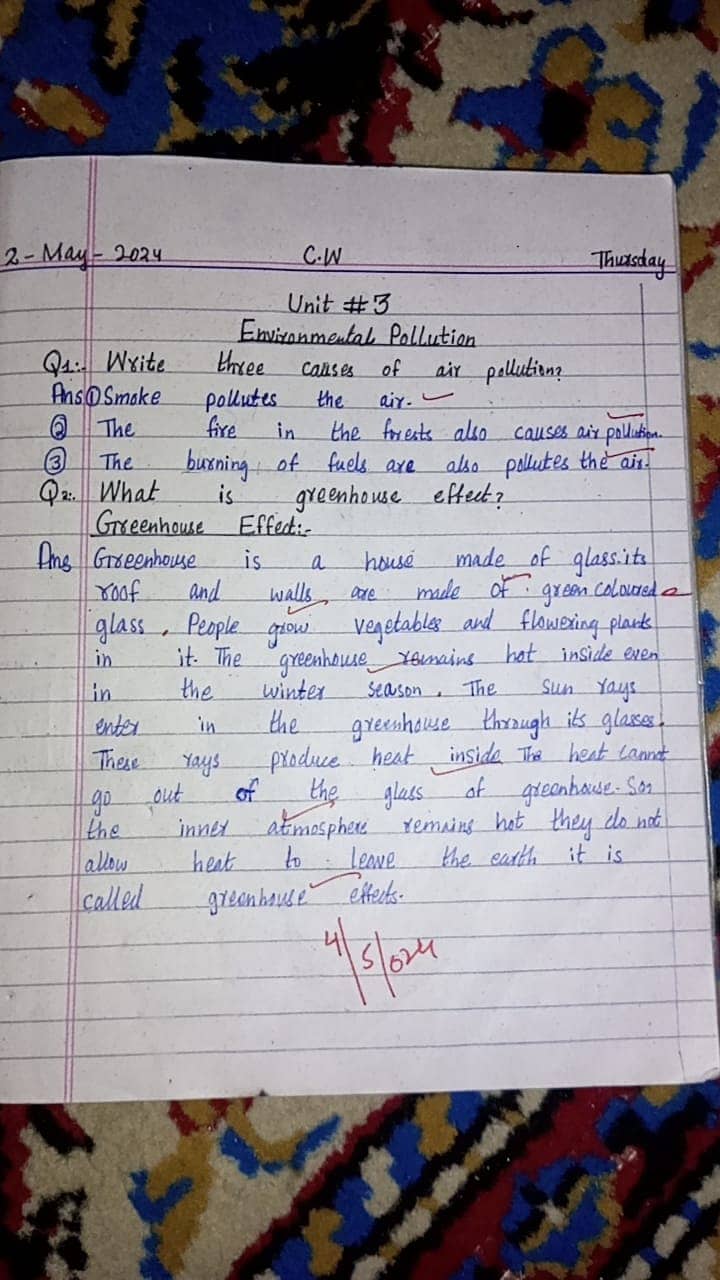 2-May-2024 C.W Thursday
Unit #3
Environmental Pollution
Q1:- Write three causes of air pollution?
Ans ① Smoke pollutes the air.
② The fire in the forests also causes air pollution.
③ The burning of fuels are also pollutes the air.
Q2:. What is greenhouse effect?
Greenhouse Effect:-
Ans Greenhouse is a house made of glass.its
roof and walls are made of green coloured
glass. People grow vegetables and flowering plants
in it. The greenhouse remains hot inside even
in the winter season. The sun rays
enter in the greenhouse through its glasses.
These rays produce heat inside The heat cannot
go out of the glass of greenhouse. So,
the inner atmosphere remains hot they do not
allow heat to leave the earth it is
called greenhouse effects.
4/5/024